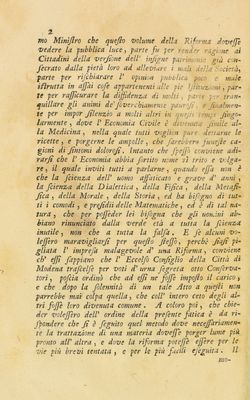 2
mo Ministro che questo volume della Riforma dovesse
vedere la pubblica luce, parte fu per render ragione ai
Cittadini della versione dell' insigne patrimonio già con-
secrato dalla pietà loro ad alleviare i mali della Società,
parte per rischiarare l' opinion pubblica poco e male
istrutta in assai cose appartenenti alle pie Istituzioni, par-
te per rassicurare la diffidenza di molti, parte per tran-
quillare gli animi de' soverchiamente paurosi, e finalmente
per impor silenzio a molti altri in questi tempi singo-
larmente, dove l' Economia Civile è divenuta simile al-
la Medicina, nella quale tutti vogliono pure dettarne le
ricette, e porgerne le ampolle, che sarebbono funeste ca-
gioni di funesti dolorosi. Intanto che spesso conviene addi-
rarsi che l' Economia abbia sortito nome sì trito e volga-
re, il quale inviti tutti a parlarne, quando essa non è
che la scienza dell' uomo affaticato e grave d' anni,
la scienza della Dialettica, della Fisica, della Metafi-
sica, della Morale, della Storia, ed ha bisogno di tut-
ti i comodi, e presidii delle Matematiche, ed è di tal na-
tura, che per posseder lei bisogna che gli uomini ab-
biano rinunciato dalla verde età a tutta la scienza
inutile, non che a tutta la falsa. E se alcuni vo-
lessero maravigliarsi per questo stesso, perchè siasi pi-
gliata l' impresa malagevole d' una Riforma, conviene
ch' essi sappiano che l' Eccelso Consiglio della Città di
Modena trascelse per voti d' urna segreta otto Conserva-
tori, posto ordine che ad essi ne fosse imposto il carico,
e che dopo la solennità di un tale Atto a questi non
parrebbe mai colpa quella, che coll' intero ceto degli al-
tri fosse loro divenuta comune. A coloro poi, che chie-
der volessero dell' ordine della presente fatica è da ri-
spondere che si è seguito quel metodo dove necessariamen-
te la trattazione di una materia dovesse porger lume più
pronto all' altra, e dove la riforma potesse essere per le
vie più brevi tentata, e per le più facili eseguita. Il